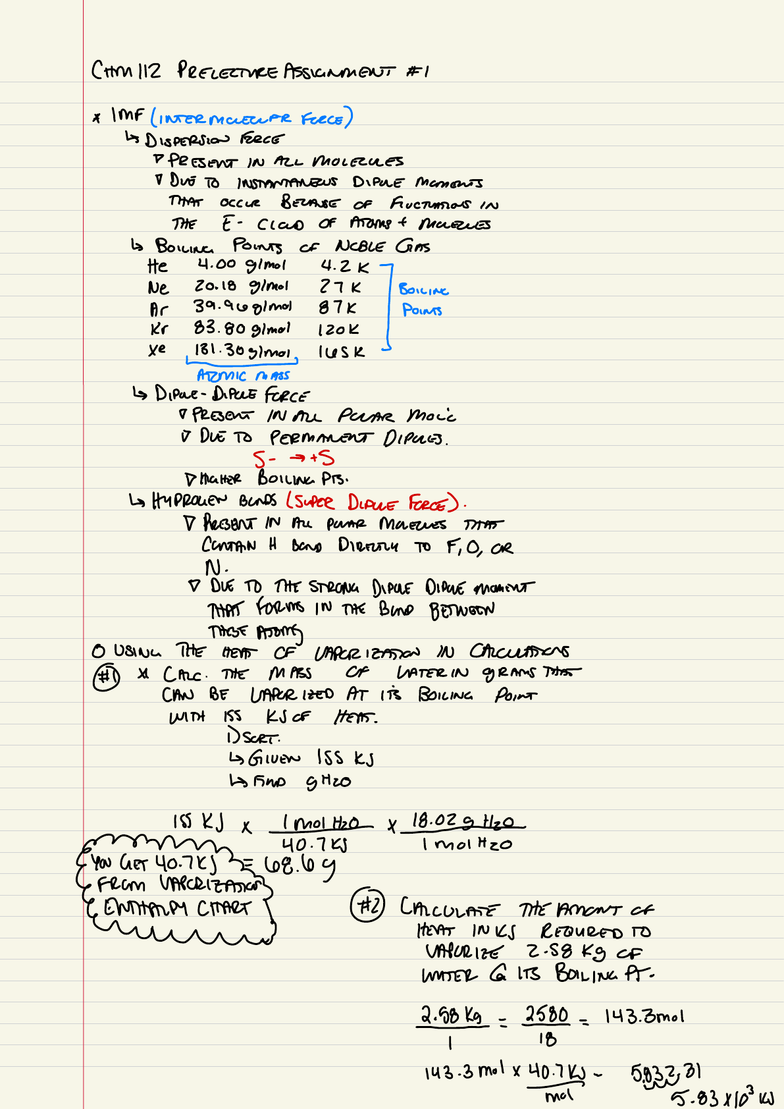 CHM 112 PRELECTURE ASSIGNMENT #1
* IMF (INTERMOLECULAR FORCE)
↳ DISPERSION FORCE
▽ PRESENT IN ALL MOLECULES
▽ DUE TO INSTANTANEUS DIPOLE MOMENTS
THAT OCCUR BECAUSE OF FLUCTUATIONS IN
THE E- CLOUD OF ATOMS + MOLECULES
↳ BOILING POINTS OF NOBLE GAS
He 4.00 g/mol 4.2 K
Ne 20.18 g/mol 27 K
Ar 39.96 g/mol 87 K
Kr 83.80 g/mol 120 K
Xe 131.30 g/mol 165 K
BOILING
POINTS
ATOMIC MASS
↳ DIPOLE-DIPOLE FORCE
▽ PRESENT IN ALL POLAR MOL'C
▽ DUE TO PERMANENT DIPOLES.
S- → +S
▽ HIGHER BOILING PTS.
↳ HYDROGEN BONDS (SUPER DIPOLE FORCE).
▽ PRESENT IN ALL POLAR MOLECULES THAT
CONTAIN H BOND DIRECTLY TO F, O, OR
N.
▽ DUE TO THE STRONG DIPOLE DIPOLE MOMENT
THAT FORMS IN THE BOND BETWEEN
THESE ATOMS
O USING THE HEAT OF VAPORIZATION IN CALCULATIONS
#1 * CALC. THE MASS OF WATER IN grams THAT
CAN BE VAPORIZED AT ITS BOILING POINT
WITH 155 KJ OF HEAT.
1) SORT.
↳ GIVEN 155 KJ
↳ FIND g H2O
155 KJ × 1 mol H2O / 40.7 KJ × 18.02 g H2O / 1 mol H2O
= 68.6 g
YOU GET 40.7 KJ
FROM VAPORIZATION
ENTHALPY CHART
#2 CALCULATE THE AMONT OF
HEAT IN KJ REQUIRED TO
VAPORIZE 2.58 Kg OF
WATER @ ITS BOILING PT.
2.58 Kg / 1 = 2580 / 18 = 143.3 mol
143.3 mol × 40.7 KJ / mol = 5832.31
5.83 × 10³ KJ